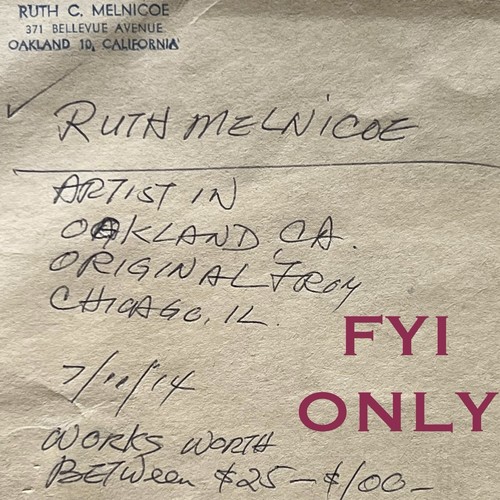 RUTH C. MELNICOE
371 BELLEVUE AVENUE
OAKLAND 10, CALIFORNIA
RUTH MELNICOE
ARTIST IN
OAKLAND, CA.
ORIGINAL FROM
CHICAGO, IL.
7/11/14
WORKS WORTH
BETWEEN $25- $100-
FYI
ONLY